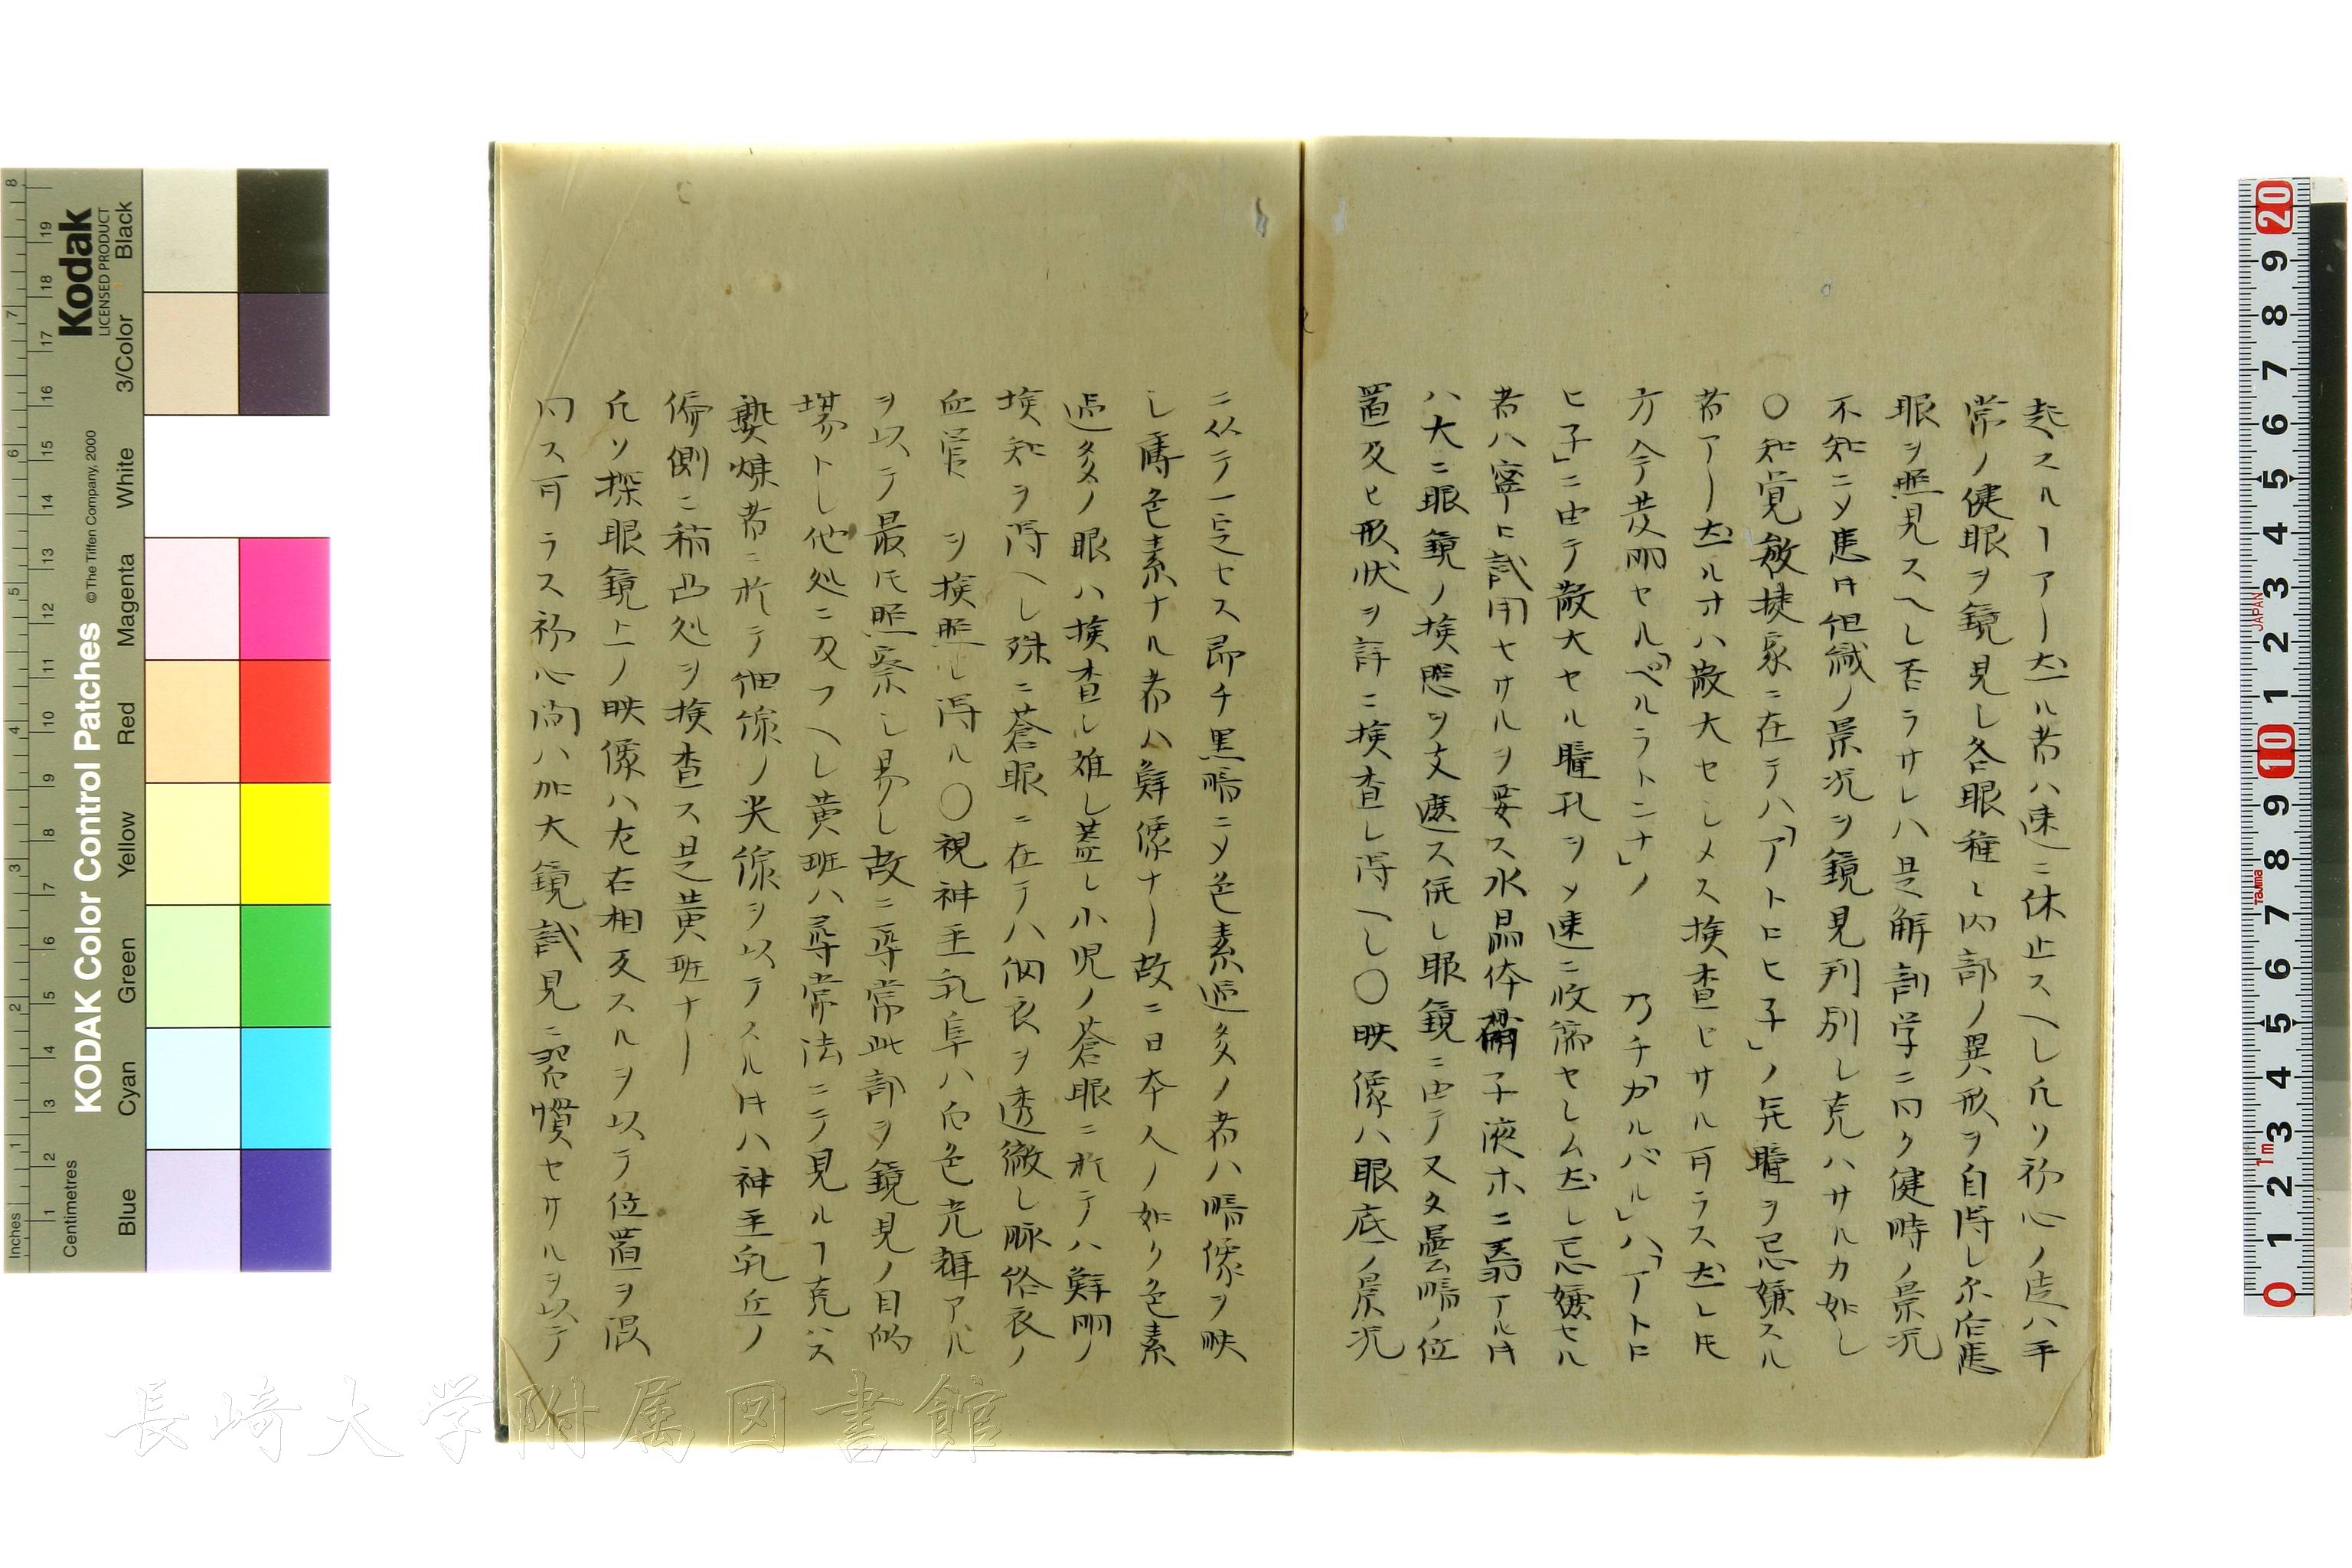 起スルヿアリ然ル者ハ速ニ休止スヘシ凡ソ初心ノ徒ハ平
常ノ健眼ヲ鏡見シ各眼種々内部ノ異形ヲ自得シ尓后患
眼ヲ照見スヘシ否ラサレハ是解剖学ニ向ク健時ノ景况
不知ニメ患件組織ノ景况ヲ鏡見判別シ克ハサルカ如シ
〇知覚敏捷家ニ在テハ「アトロヒ子」ノ先瞳ヲ忌嫌スル
者アリ然ルオハ散大セシメス検査セサル可ラス然レ𪜈
方今発明セル「ベルラトンナ」ノ 乃チ「カルバル」ハ「アトロ
ヒ子」ニ由テ散大セル瞳孔ヲメ速ニ收縮セシム然シ忌嫌セル
者ハ寧ロ試用セサルヲ要ス水晶体硝子液ホニ翳アル片
ハ大ニ眼鏡ノ検應ヲ支遮ス併シ眼鏡ニ由テ又タ曇暗ノ位
置及ヒ形状ヲ詳ニ検査シ得ヘシ〇映像ハ眼底ノ景况
ニ从テ一定セス即チ黒暗ニメ色素過多ノ者ハ暗像ヲ映
シ薄色素ナル者ハ鮮像ナリ故ニ日本人ノ如ク色素
過多ノ眼ハ検査シ難シ蓋シ小児ノ蒼眼ニ於テハ鮮明ノ
検知ヲ得ヘシ殊ニ蒼眼ニ在テハ網衣ヲ透徹シ脈絡衣ノ
血管 ヲ検照シ得ル〇視神圣乳阜ハ白色光輝アル
ヲ以テ最𪜈照察シ易シ故ニ尋常此部ヲ鏡見ノ目的
堺トシ他処ニ及フヘシ黄班ハ尋常法ニテ見ルヿ克ハス
熟煉者ニ於テ細線ノ光線ヲ以テスル片ハ神圣乳丘ノ
偏側ニ稍凸処ヲ検査ス是黄班ナリ
凡ソ探眼鏡上ノ映像ハ左右相反スルヲ以テ位置ヲ誤
内ス可ラス初心間ハ加大鏡試見ニ習慣セサルヲ以テ
長崎大学附属図書館
KODAK Color Control Patches
© The Tiffen Company, 2000
Kodak
LICENSED PRODUCT
Inches
Centimetres
Blue
Cyan
Green
Yellow
Red
Magenta
White
3/Color
Black
JAPAN
Tajima
1m